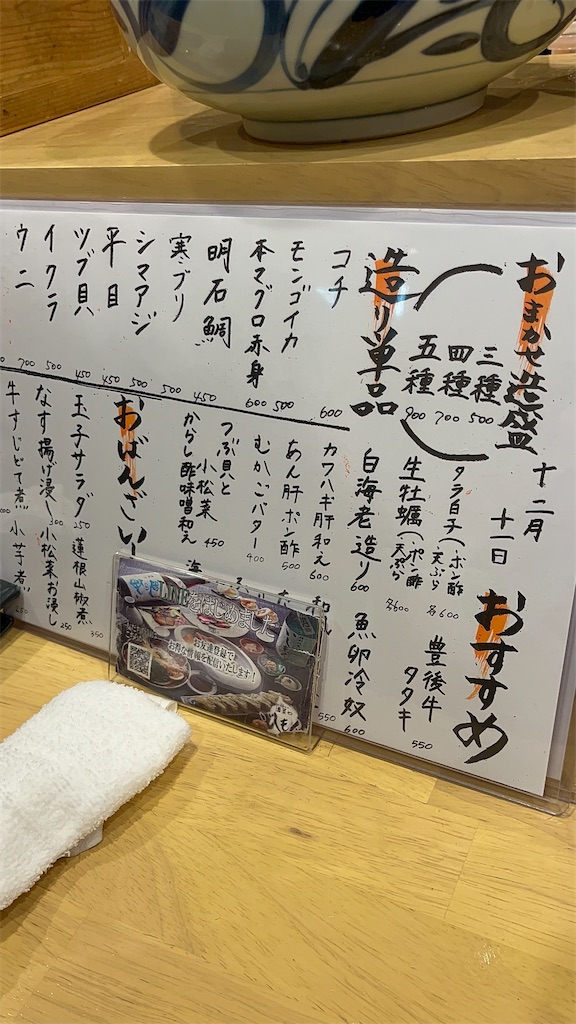 おまかせ造り盛
三種 500
四種 700
五種 900
造り単品
コチ 600
モンゴイカ 500
本マグロ赤身 600
明石鯛 450
寒ブリ 500
シマアジ 500
平目 450
ツブ貝 450
イクラ 500
ウニ 700
十二月
十一日
おすすめ
タラ白子(ポン酢 天ぷら 各600
豊後牛
タタキ 550
生牡蠣(ポン酢 天ぷら 各600
白海老造り 600
魚卵冷奴 600
カワハギ肝和え 600
550
あん肝ポン酢 500
むかごバター 400
つぶ貝と
小松菜
からし酢味噌和え 450
おばんざい
玉子サラダ 250
蓮根山椒煮 350
なす揚げ浸し 300
小松菜お浸し 250
牛すじどて煮
小芋煮 250
LINEをはじめました
お友達登録で
お得な情報を配信いたします!